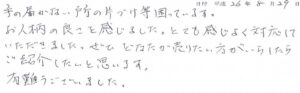 26年 8月29日
手の届かない所の片づけ等困っています。
お人柄の良さを感じました。とても感じよく対応して
いただきました。ぜひ どなたか売りたい方がいらしたら
ご紹介したいと思います。
有難うございました。